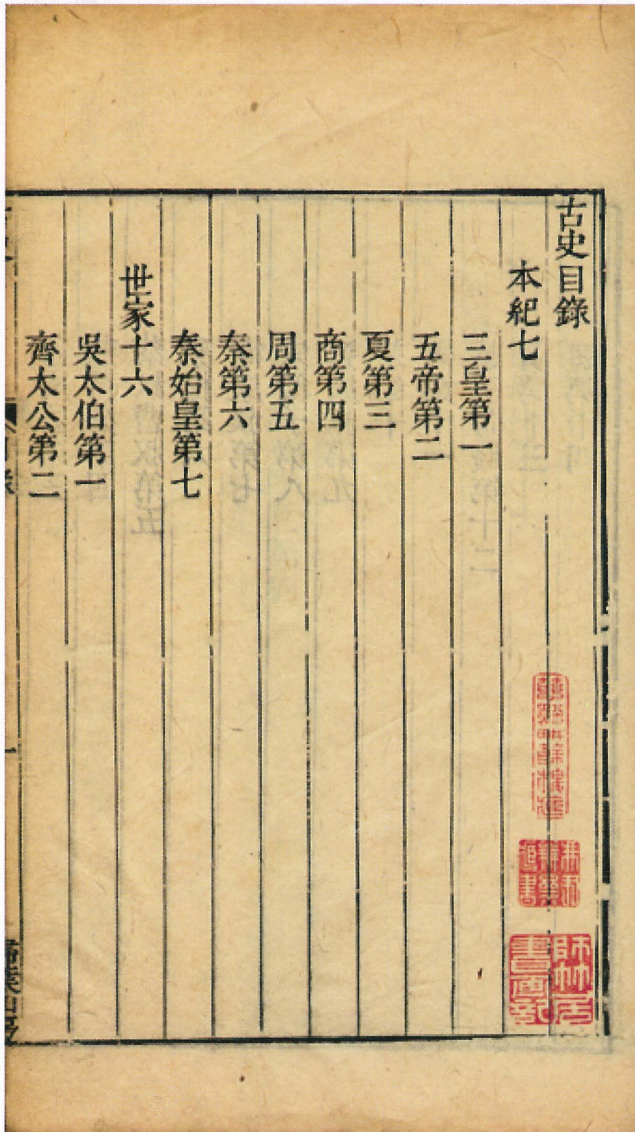 古史目錄
本紀七
三皇第一
五帝第二
夏第三
商第四
周第五
秦第六
秦始皇第七
世家十六
吳太伯第一
齊太公第二
一